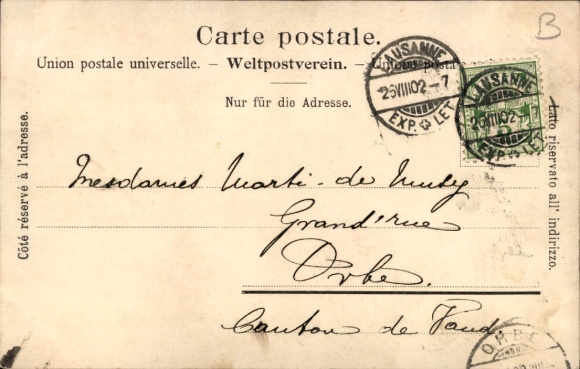 B
Carte postale.
Union postale universelle. – Weltpostverein. – Unione posta
Nur für die Adresse.
LAUSANNE
26 VIII 02 – 7
EXP. LET.
LAUSANNE
26 VIII 02 – 7
EXP. LET.
5
Côté réservé à l'adresse.
Lato riservato all' indirizzo.
Mesdames Marti - de
Grand'rue
Orbe.
Canton de Vaud
ORBE